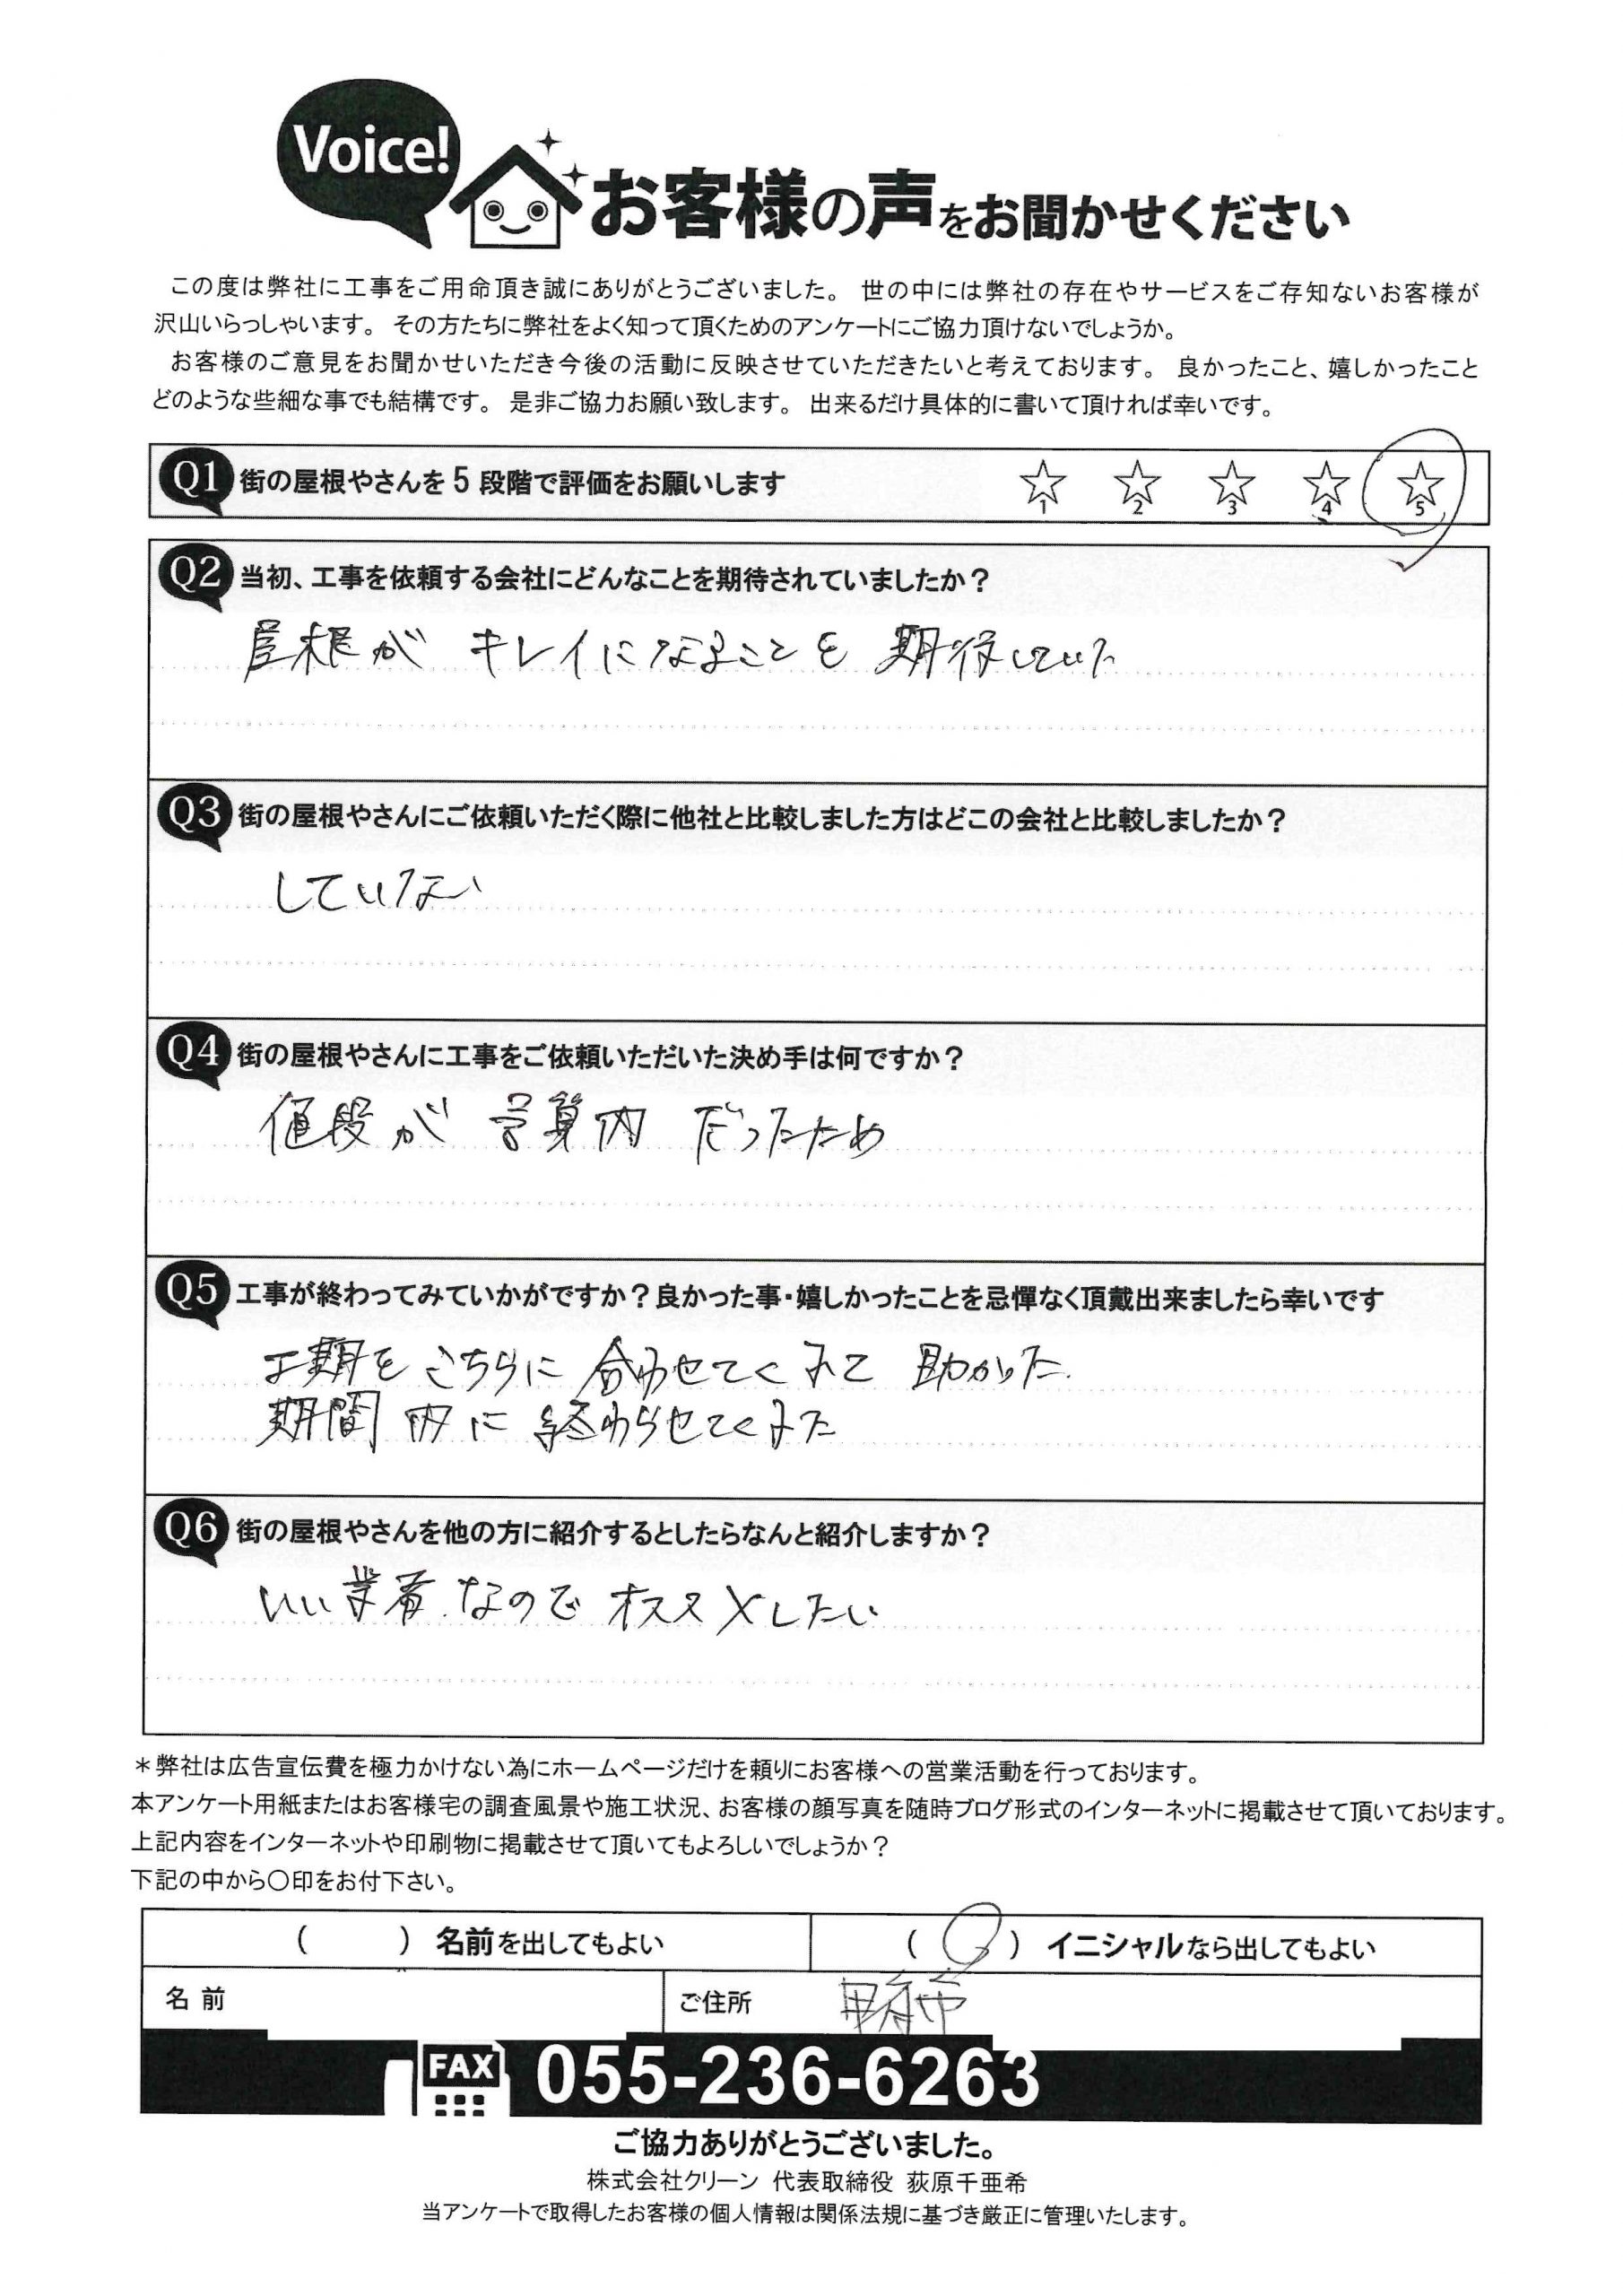 Voice!
お客様の声をお聞かせください
この度は弊社に工事をご用命頂き誠にありがとうございました。 世の中には弊社の存在やサービスをご存知ないお客様が
沢山いらっしゃいます。 その方たちに弊社をよく知って頂くためのアンケートにご協力頂けないでしょうか。
お客様のご意見をお聞かせいただき今後の活動に反映させていただきたいと考えております。 良かったこと、嬉しかったこと
どのような些細な事でも結構です。 是非ご協力お願い致します。 出来るだけ具体的に書いて頂ければ幸いです。
Q1 街の屋根やさんを5段階で評価をお願いします ☆1 ☆2 ☆3 ☆4 ☆5
Q2 当初、工事を依頼する会社にどんなことを期待されていましたか？
屋根が キレイになることを 期待していた
Q3 街の屋根やさんにご依頼いただく際に他社と比較しました方はどこの会社と比較しましたか？
していない
Q4 街の屋根やさんに工事をご依頼いただいた決め手は何ですか？
値段が 予算内 だったため
Q5 工事が終わってみていかがですか？良かった事・嬉しかったことを忌憚なく頂戴出来ましたら幸いです
工期を こちらに 合わせてくれて 助かった.
期間内に 終わらせてくれた
Q6 街の屋根やさんを他の方に紹介するとしたらなんと紹介しますか？
いい業者なので オススメしたい
＊弊社は広告宣伝費を極力かけない為にホームページだけを頼りにお客様への営業活動を行っております。
本アンケート用紙またはお客様宅の調査風景や施工状況、お客様の顔写真を随時ブログ形式のインターネットに掲載させて頂いております。
上記内容をインターネットや印刷物に掲載させて頂いてもよろしいでしょうか？
下記の中から〇印をお付下さい。
（　　）名前を出してもよい （〇）イニシャルなら出してもよい
名前 ご住所 甲府市
FAX 055-236-6263
ご協力ありがとうございました。
株式会社クリーン 代表取締役 荻原千亜希
当アンケートで取得したお客様の個人情報は関係法規に基づき厳正に管理いたします。